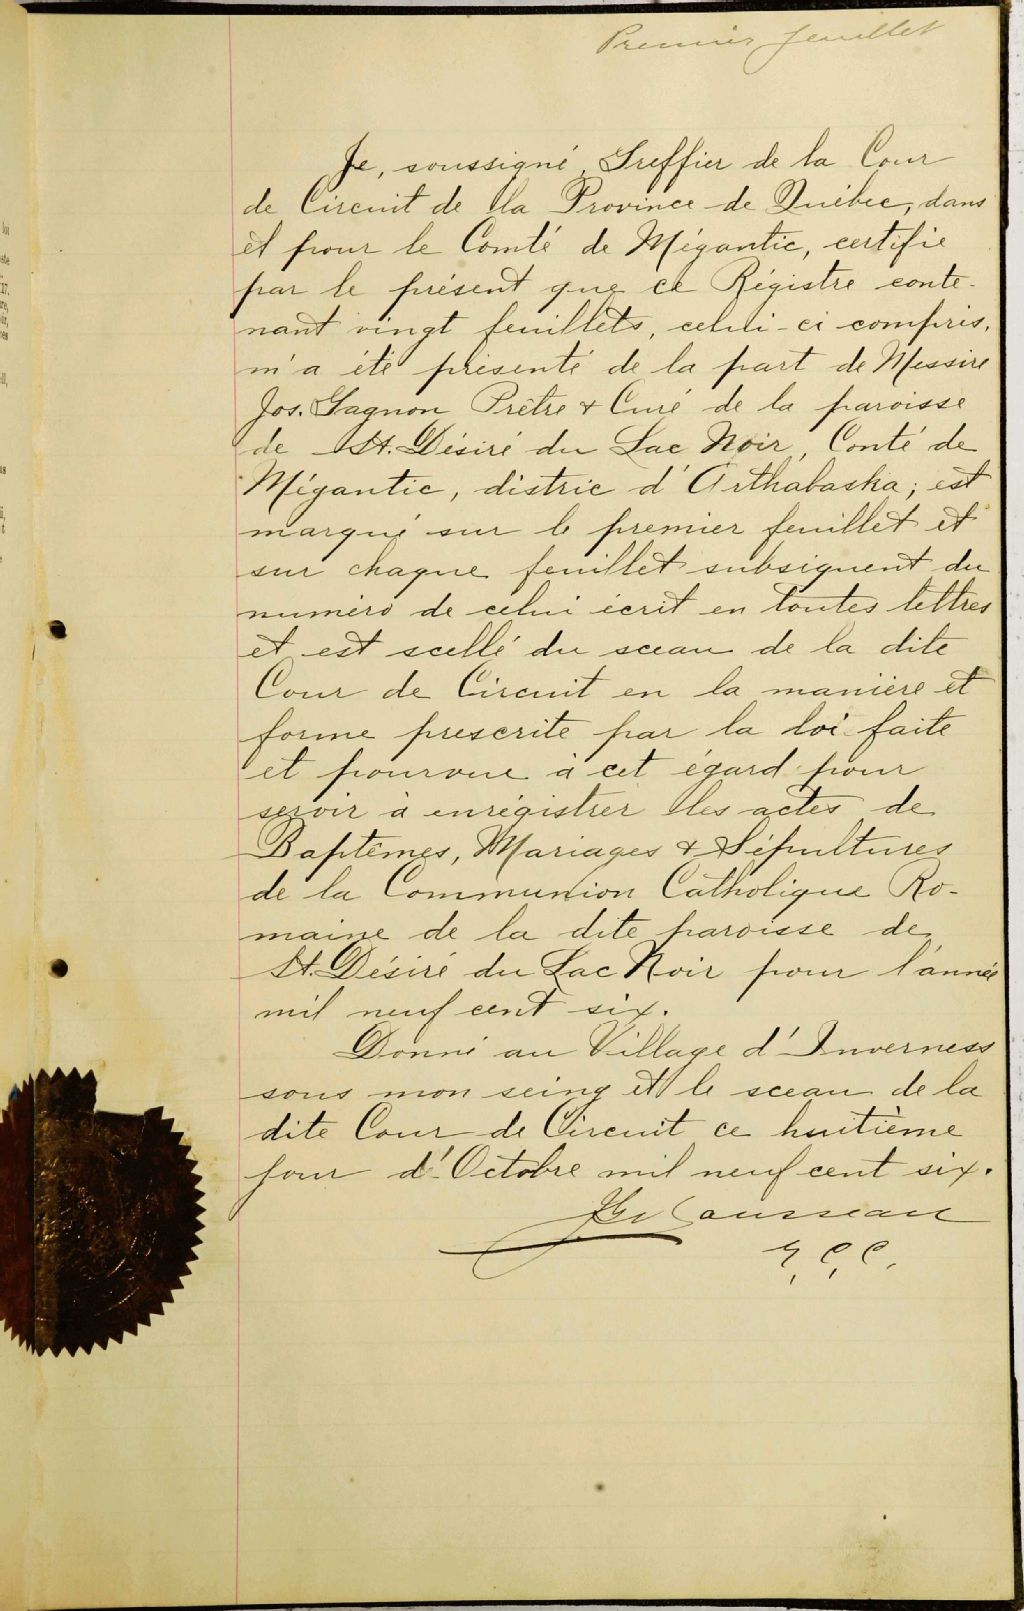 Premier feuillet
Je, soussigné, Greffier de la Cour
de Circuit de la Province de Québec, dans
et pour le Comté de Mégantic, certifie
par le présent que ce Régistre conte-
nant vingt feuillets, celui-ci compris,
m'a été présenté de la part de Messire
Jos. Gagnon Prêtre & Curé de la paroisse
de St. Désiré du Lac Noir, Conté de
Mégantic, distric d'Arthabaska; est
marqué sur le premier feuillet et
sur chaque feuillet subsiquent du
numéro de celui écrit en toutes lettres
et est scellé du sceau de la dite
Cour de Circuit en la manière et
forme prescrite par la loi faite
et pourvue à cet égard pour
servir à enrégistrer les actes de
Baptêmes, Mariages & Sépultures
de la Communion Catholique Ro-
maine de la dite paroisse de
St. Désiré du Lac Noir pour l'année
mil neuf cent six.
Donné au Village d'Inverness
sous mon seing et le sceau de la
dite Cour de Circuit ce huitième
jour d'Octobre mil neuf cent six.
G. C. C.